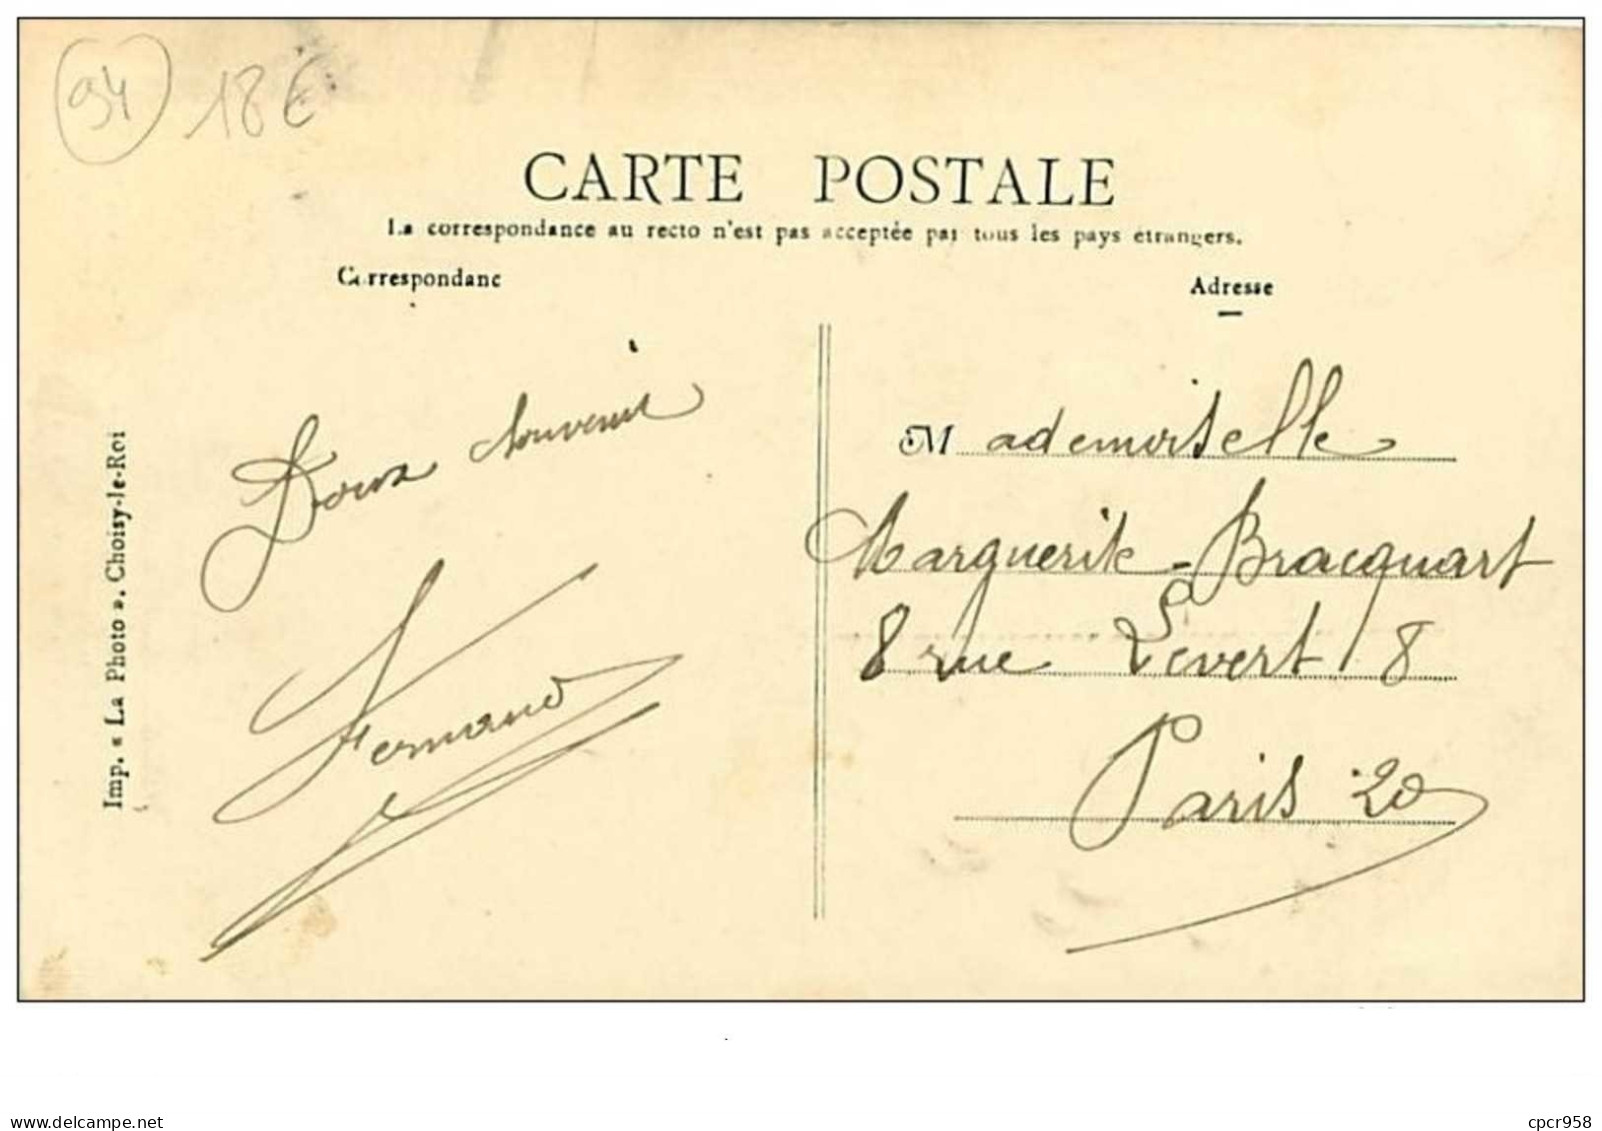 94
18 €
CARTE POSTALE
La correspondance au recto n'est pas acceptée par tous les pays étrangers.
Correspondanc
Adresse
Doux souvenir
Fernand
Mademoiselle
Marguerite Bracquart
8 rue Levert 8
Paris 20
Imp. « La Photo ». Choisy-le-Roi
www.delcampe.net
cpcr958